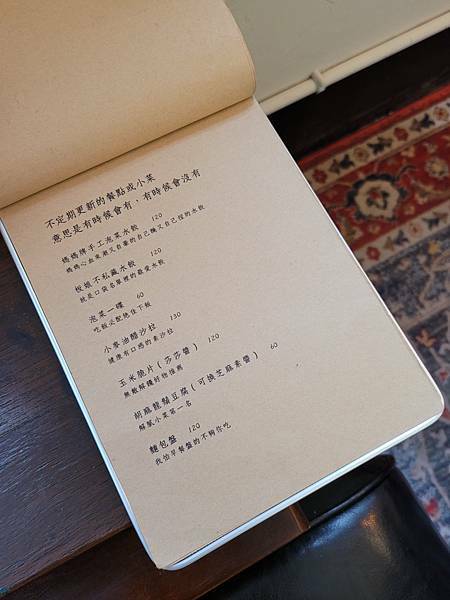 不定期更新的餐點或小菜
意思是有時候會有,有時候會沒有
媽媽牌手工泡菜水餃 120
媽媽心血來潮又自養的自己醃又自己捏的水餃
板娘不私藏水餃 120
就是口袋名單裡的最愛水餃
泡菜一碟 60
吃飯必配絕佳下飯
小麥油醋沙拉 130
健康有口感的素沙拉
玉米脆片(莎莎醬) 120
無敵解饞好物推薦
胡麻龍鬚豆腐(可換芝麻素醬) 60
解膩小菜第一名
麵包盤 120
我怕早餐盤的不夠你吃